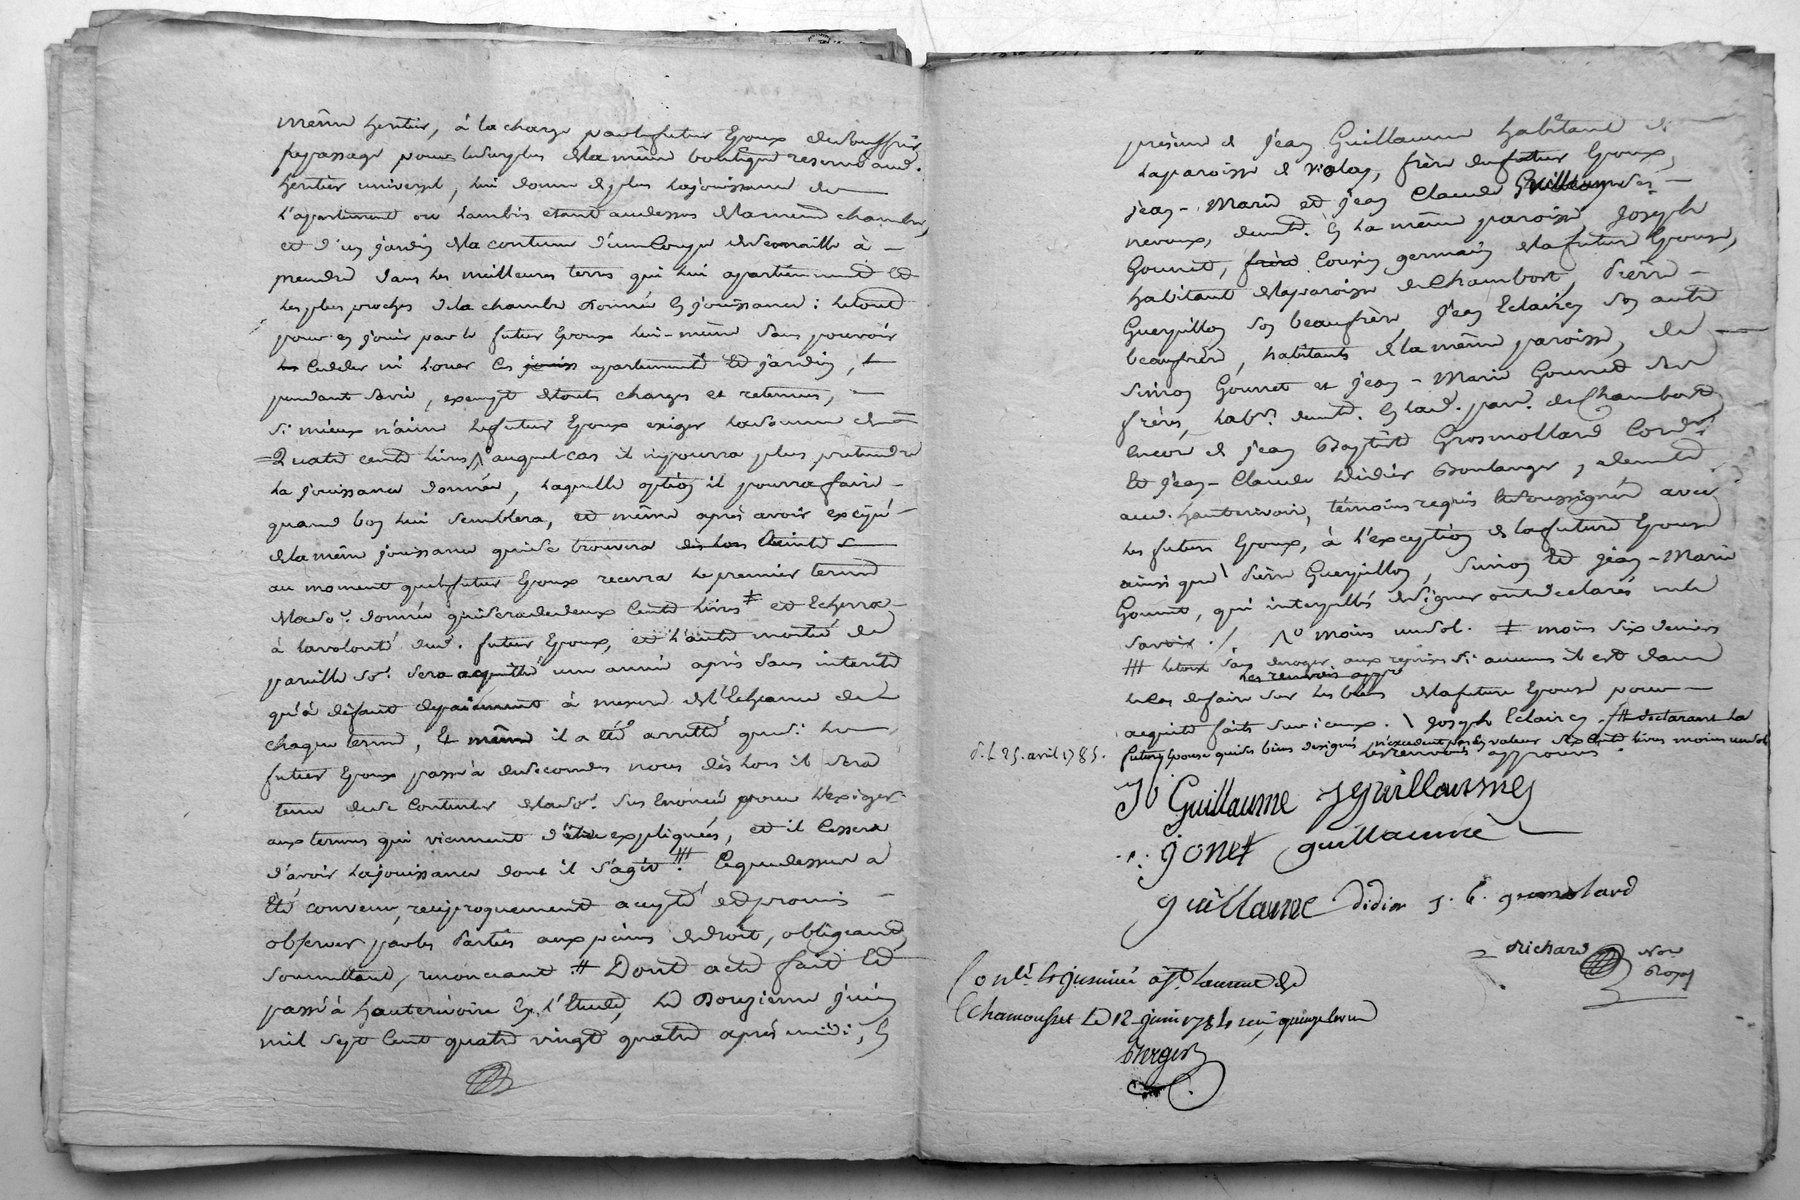 même heritier, à la charge par le futur Epoux de souffrir
passage pour le surplus de la même boutique reservé aud.
heritier universel, lui donne de plus la jouissance de
l'apartement ou lambris etant audessus de la même chambre,
et d'un jardin de la contenue d'une Coupe de semaille à
prendre dans les meilleures terres qui lui apartiennent et
les plus proches de la chambre donnée en jouissance: le tout
pour en jouir par le futur Epoux lui-même sans pouvoir
ceder ni louer les apartement et jardin,
pendant sa vie, exempt de touts charges et retenues,
si mieux n'aime le futur Epoux exiger la somme de
Quatre cents livres, auquel cas il ne pourra plus pretendre
la jouissance donnée, laquelle option il pourra faire
quand bon lui semblera, et même après avoir
de la même jouissance qui se trouvera dès lors Eteinte
au moment que le futur Epoux recevra le premier terme
de la so.e donnée qui sera de deux Cents livres ‡ et Echerra
à la volonté dud. futur Epoux, et l'autre moitié de
pareille so.e sera acquittée une année après sans interets
qu'à défaut de paiement à mesure de l'Echeance de
chaque terme, Et même il a été arretté que si le
futur Epoux passe à de secondes noces dès lors il sera
tenu de se Contenter de la so.e sus Enoncée, pour l'exiger
aux termes qui viennent d'être expliqués, et il Cessera
d'avoir la jouissance dont il s'agit. Ce que dessus a
Eté convenu, reciproquement accepté et promis
observer par les Parties aux peines de droit, obligeant,
soumettant, renonciant # Dont acte fait et
passé à hauterivoire En l'Etude, le Douzieme juin
mil sept Cent quatre vingt quatre après midi, En
presence de Jean Guillaume habitant de
la paroisse de Violay, frère du futur Epoux,
jean-Marie et jean Claude Guillaume ses
neveux, demts. En la même paroisse, Joseph
Gounet, frère Cousin germain de la future Epouse,
habitant de la paroisse de Chambost, Pierre
Guerpillon son beaufrère Jean Eclaircy son autre
beaufrère, habitants de la même paroisse, de
Simon Gounet et jean-Marie Gounet ses
frères, habts. demts. En lad. par. de Chambost,
encore de jean Baptiste Grosmollard Cord.r
Et Jean-Claude Didier Boulanger, demts
aud. hauterivoire, témoins requis Et soussignés avec
les futurs Epoux, à l'exception de la future Epouse
ainsi que \ Pierre Guerpillon, Simon Et Jean-Marie
Gounet, qui interpellés de signer ont declarés ne le
savoir ./ moins un sol. ‡ moins six deniers
# le tout sans deroger aux reprises si aucunes il est dans
les renvois app.
le cas de faire sur les biens de la future Epouse pour
acquits faits sur iceux. \ Joseph Eclaircy. # declarant la
future Epouse que ses biens designés n'excedent pas la valeur six Cents livres moins un sol
les renvois approuvés
d. L. 25. avril 1785.
Guillaume jguillaumes
gonet guillaume
guillaume didier J. B. gromolard
Richard Nore
Royal
Con.lé Et insinué à St. laurent de
Chamousset Le 12 juin 1784 reçu quinze livres